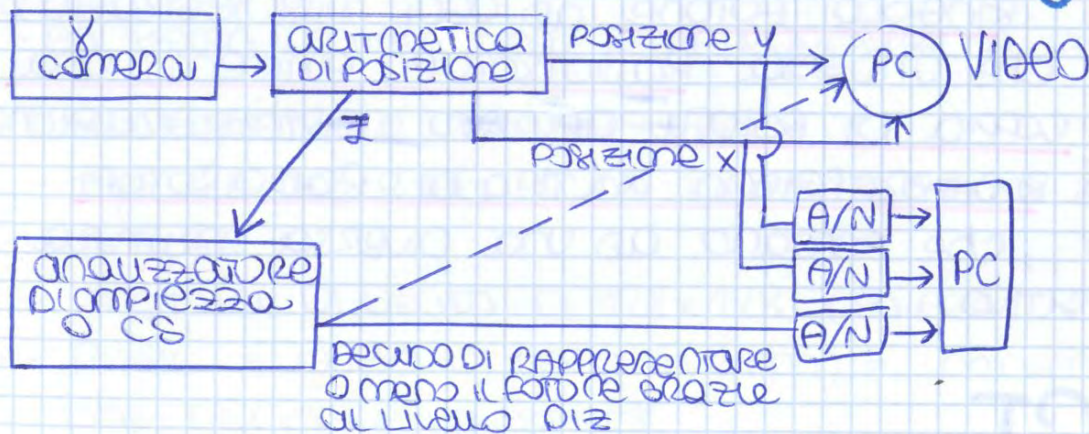 γ
camera
ARITMETICA
DI POSIZIONE
POSIZIONE Y
PC
VIDEO
Z
POSIZIONE X
ANALIZZATORE
DI AMPIEZZA
O CS
A/N
A/N
A/N
PC
DECIDO DI RAPPRESENTARE
O MENO IL FOTONE GRAZIE
AL LIVELLO DI Z